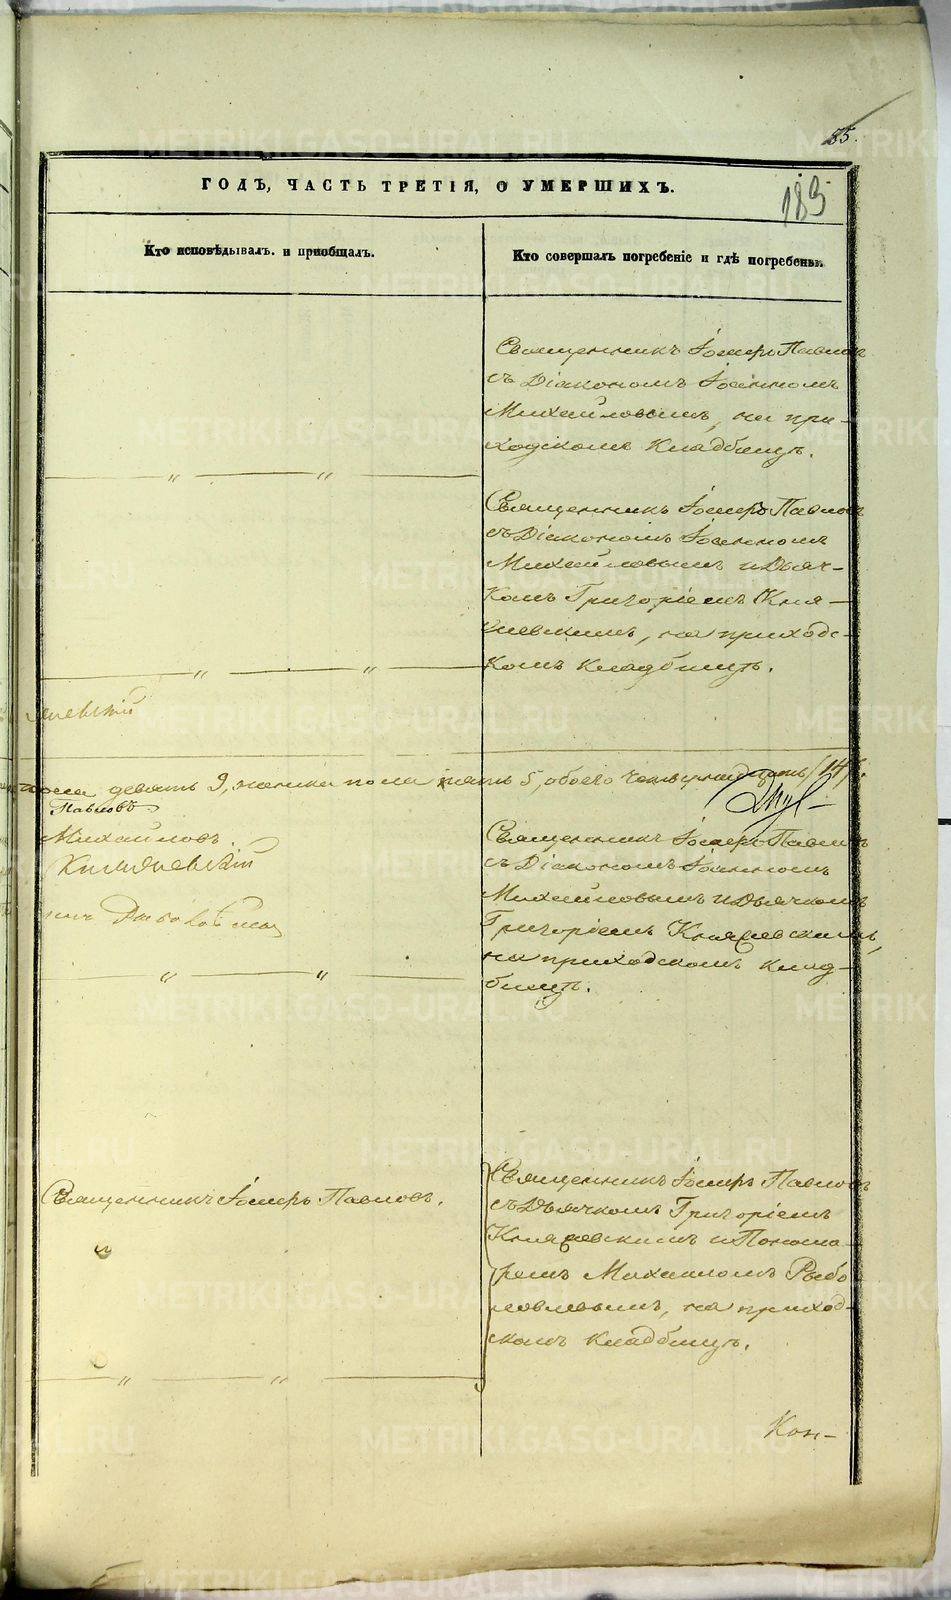 85.
183
ГОДЪ, ЧАСТЬ ТРЕТІЯ, О УМЕРШИХЪ.
Кто исповѣдывалъ. и пріобщалъ.
Кто совершалъ погребеніе и гдѣ погребены.
Священникъ Іосифъ Павловъ
съ Діакономъ Іоанномъ
Михайловымъ, на при-
ходскомъ кладбищѣ.
Священникъ Іосифъ Павловъ
съ Діакономъ Іоанномъ
Михайловымъ и Дьяч-
комъ Григоріемъ Кня-
евскимъ, на приходс-
комъ кладбищѣ.
пола девять 9, женска пола пять 5, обоего четырнадцать (14).
Павловъ
Михайловъ.
Священникъ Іосифъ Павловъ
съ Діакономъ Іоанномъ
Михайловымъ и Дьячкомъ
Григоріемъ
на приходскомъ клад-
бищѣ.
Священникъ Іосифъ Павловъ.
Священникъ Іосифъ Павловъ
съ Дьячкомъ Григоріемъ
и Понома-
ремъ Михаиломъ Рыбо
ловлевымъ, на приход-
скомъ кладбищѣ.
Кон-
METRIKI.GASO-URAL.RU